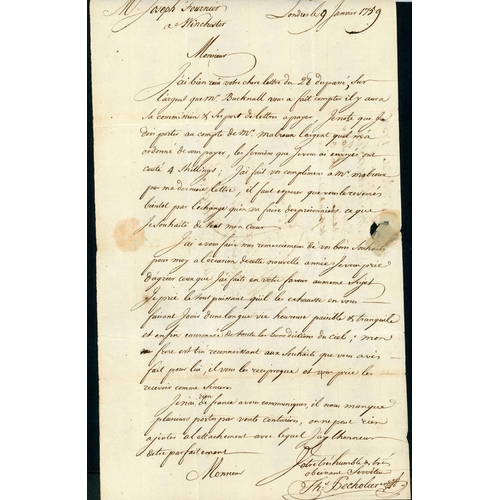 Mr. Joseph Fournier
a Winchester
Londres le 9 Janvier 1759
Monsieur
J'ai bien reçu votre chere lettre du 28 du passé, Sur
l'argent que Mr. Bucknall vous a fait compter il y aura
sa commission & ses port de lettres a payer, Je n'ose que
dois porter au compte de Mr. Mabreau l'argent quil m'a
ordonné de vous payer, les Souliers que Je vous ai envoyés ont
couté 4 Shillings; J'ai fait vos complimens a Mr. Mabreau
par ma derniere lettre, il faut esperer que vous le reverrés
bientôt par l'echange qu'on va faire des prisonniers ce que
Je Souhaite de tout mon cœur
J'ai a vous faire mes remerciemens de vos bons Souhaits
pour moy a l'occasion de cette nouvelle année Je vous prie
d'agréer ceux que J'ai faits en votre faveur au meme Sujet
Je prie le tout puissant qu'il les exhausse en vous
faisant Jouir d'une longue vie heureuse paisible & tranquile
et enfin couronnée De toutes les benedictions du ciel; mon
frere est bien reconnaissant aux Souhaits que vous avés
fait pour lui, il vous les reciproque et vous prie les
recevoir comme Sinceres
Je n'ai rien de france a vous communiquer, il nous manque
plusieurs postes par vents contraires, on ne peut rien
ajouter al attachement avec lequel J'ay l'honneur
detre parfaitement
Monsieur
Votre tres humble & tres
obeissant Serviteur
Ths. Pecholier